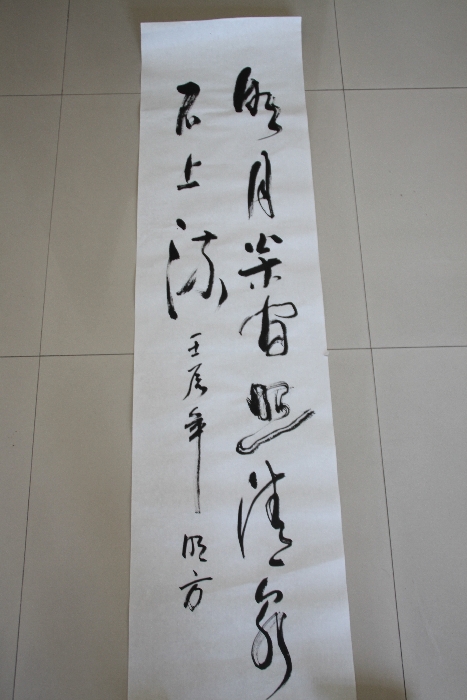 明月松间照清泉
石上流
壬辰年 明方